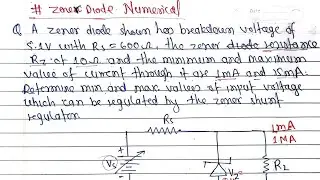 # Zener Diode Numerical
Q. A zener diode shown has breakdown voltage of
5.1V with Rs = 600Ω, the zener diode resistance
Rz of 10Ω and the minimum and maximum
value of current through it are 1mA and 15mA.
Determine min and max values of input voltage
which can be regulated by the zener shunt
regulator.
Rs
1mA
1MA
+
Vs
Vz
RL